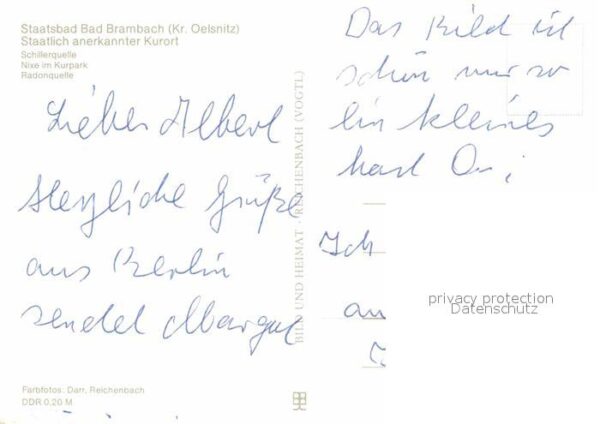 Staatsbad Bad Brambach (Kr. Oelsnitz)
Staatlich anerkannter Kurort
Schillerquelle
Nixe im Kurpark
Radonquelle
Lieber Albert
Herzliche Grüße
aus Berlin
sendet Margut
BILD UND HEIMAT · REICHENBACH (VOGTL)
Das Bild ist
schön nur so
ein kleines
hast Du;
Ich
an
privacy protection
Datenschutz
Farbfotos: Darr, Reichenbach
DDR 0,20 M